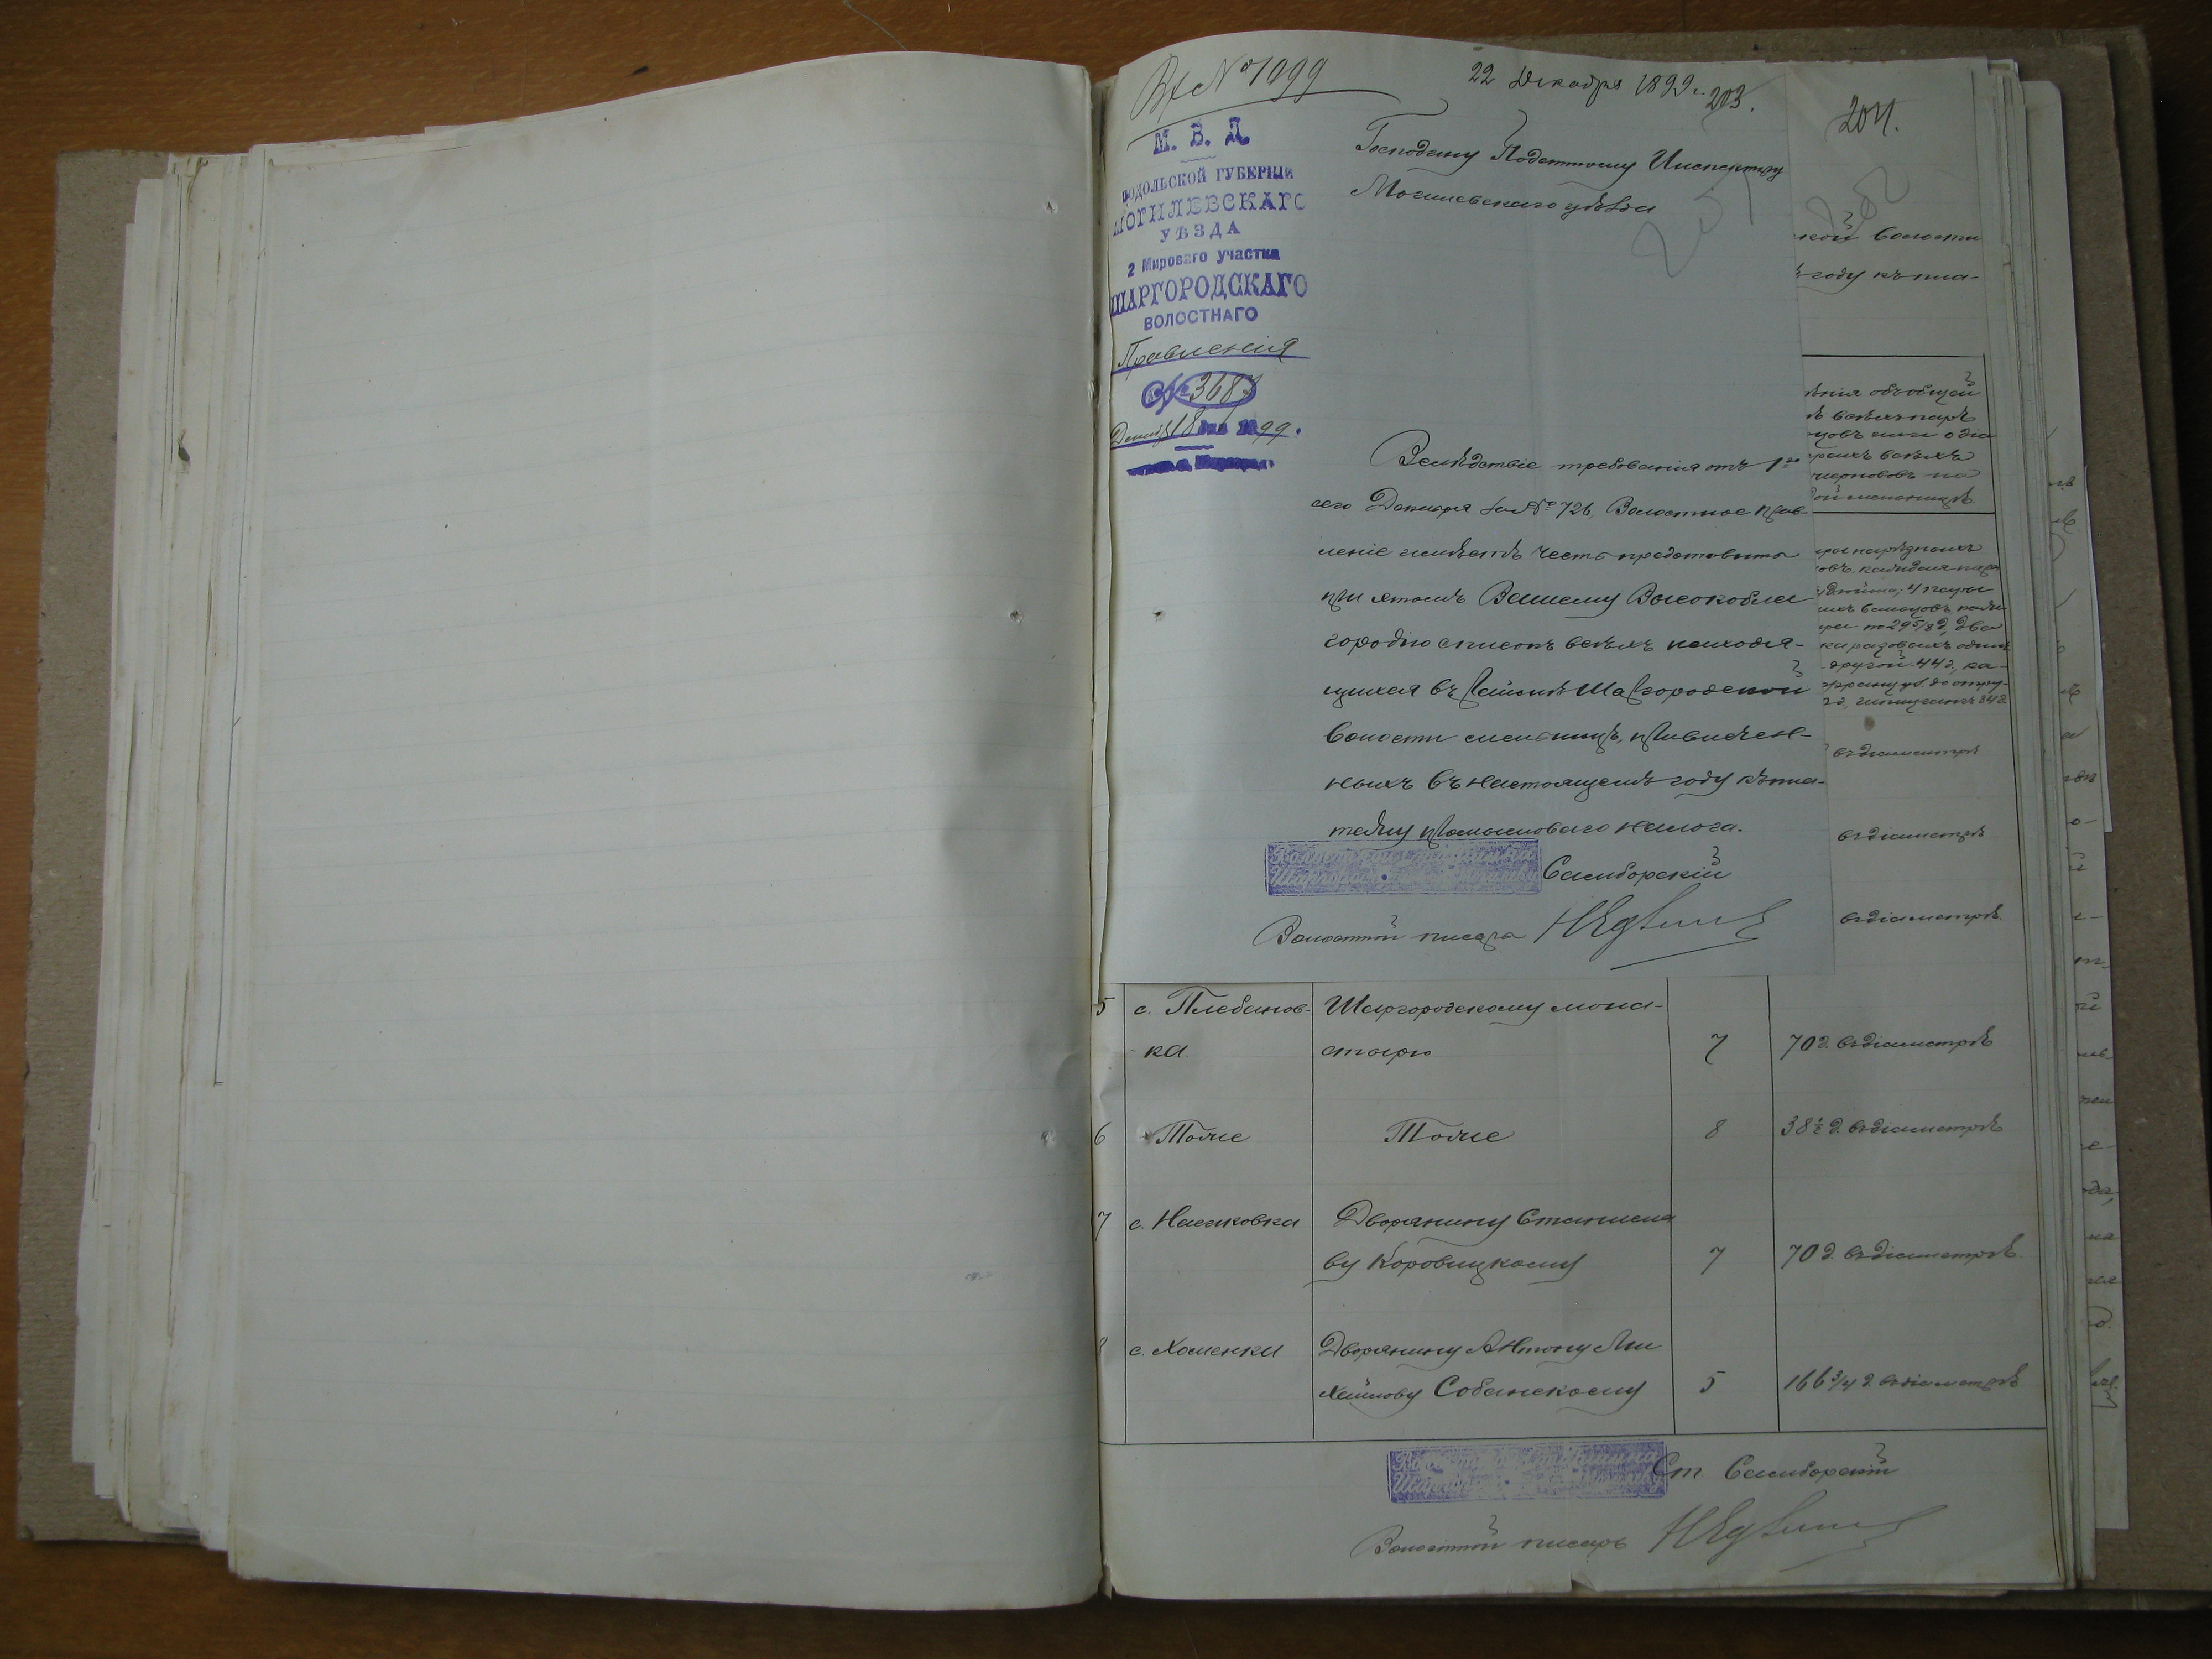 Вх № 1099
22 Декабря 1899 г.
203.
204.
М. В. Д.
ПОДОЛЬСКОЙ ГУБЕРНІИ
МОГИЛЕВСКАГО
УѢЗДА
2 Мироваго участка
ШАРГОРОДСКАГО
ВОЛОСТНАГО
Правленія
№ 3683
Декабря 18 дня 1899.
Господину Податному Инспектору
Могилевскаго уѣзда
Вслѣдствіе требованія отъ 1го
сего Декабря за № 726, Волостное Прав
леніе имѣетъ честь представить
при этомъ Вашему Высокобла
городію списокъ всѣхъ находя-
щихся въ районѣ Шаргородской
волости мельницъ, привлечен-
ныхъ въ настоящемъ году къ пла-
тежу промысловаго налога.
Самборскій
Волостной писарь
кой волости
ъ году къ пла-
ѣнія объ общей
ѣ всѣхъ паръ
цовъ или о діа
рахъ всѣхъ
жернововъ на
ой мельницѣ.
4 пары
два
другой 44 д, ка-
въ діаметрѣ
въ діаметрѣ
въ діаметрѣ
5 с. Плебанов- Шаргородскому мона-
ка стырю 7 70 д. въ діаметрѣ
6 Тоже Тоже 8 38 ½ д. въ діаметрѣ
7 с. Насиковка Дворянину Станисла
ву Коровицкому 7 70 д. въ діаметрѣ
8 с. Хоменки Дворянину Антону Ми
хайлову Собанскому 5 166 3/4 д. въ діаметрѣ
Ст Самборскій
Волостной писарь